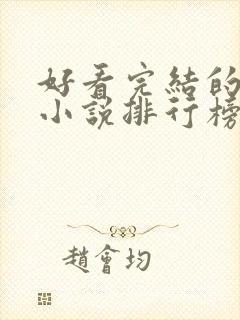 好看完結的
小說排行榜
趙會均